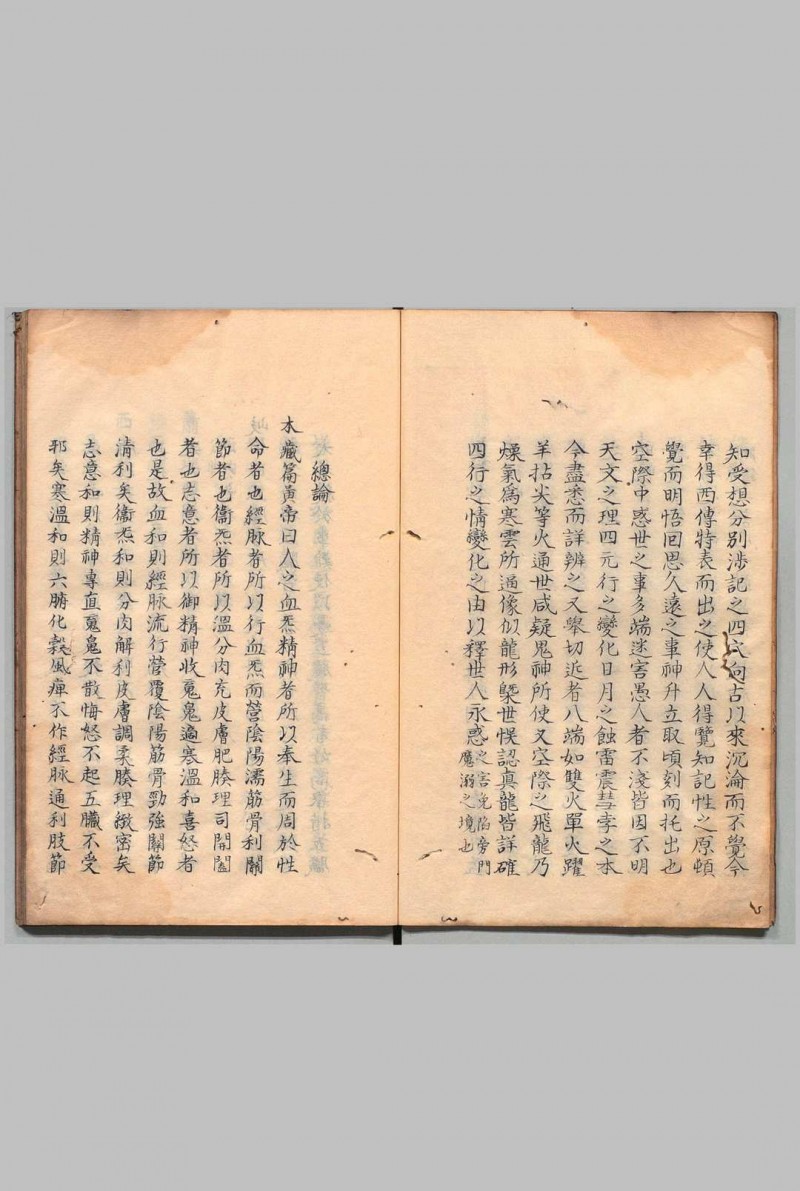 知受想分別渉記之四式向古以來沉淪而不覺今
幸得西傳特表而出之使人人得覽知記性之原頓
覺而明悟回思久遠之事神升立取頃刻而托出也
空際中惑世之事多端迷害愚人者不淺皆因不明
天文之理四元行之變化日月之蝕雷震彗孛之本
今盡悉而詳辨之又舉切近者八端如雙火單火躍
羊拈尖等火通世咸疑鬼神所使又空際之飛龍乃
燥氣爲寒雲所逼像似龍形槩世悮認真龍皆詳確
四行之情變化之由以釋世人永惑之害免陷旁門
魔溺之境也
總論
本藏篇黃帝曰人之血炁精神者所以奉生而周於性
命者也經脉者所以行血炁而營陰陽濡筋骨利關
節者也衞炁者所以溫分肉充皮膚肥腠理司開闔
者也志意者所以御精神收䰟魄適寒溫和喜怒者
也是故血和則經脉流行營覆陰陽筋骨勁強關節
清利矣衞炁和則分肉解利皮膚調柔腠理緻密矣
志意和則精神專直䰟魄不散悔怒不起五臟不受
邪矣寒溫和則六腑化穀風痺不作經脉通利肢節